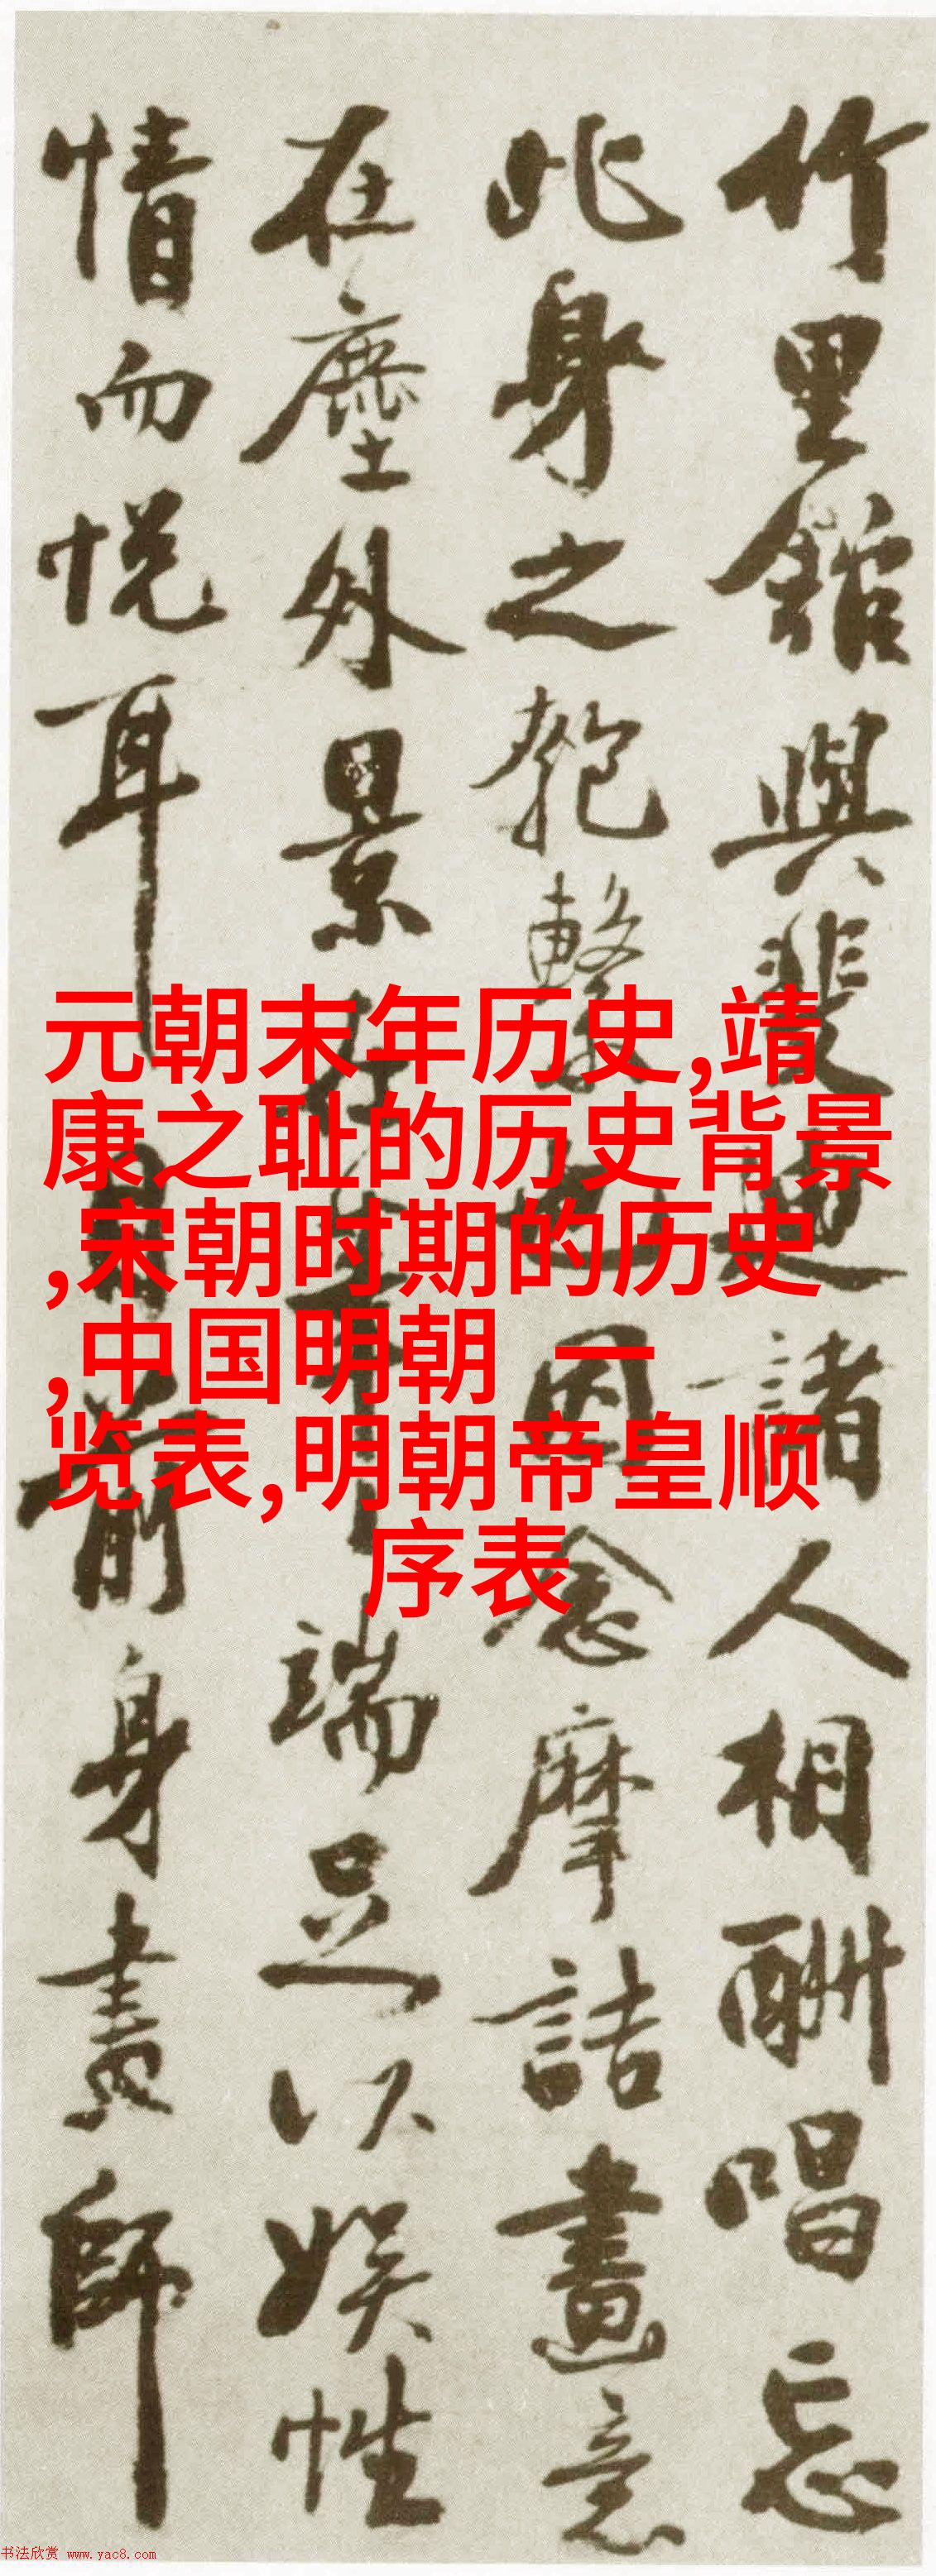 竹里館與裴迪諸人相酬唱忘
此身之匏繫也因念摩詰畫意
在塵外景在筆端足以娱性
情而悦耳目前身畫師
元朝末年历史,靖
康之耻的历史背景
,宋朝时期的历史
,中国明朝 一
览表,明朝帝皇顺
序表
书法欣赏 www.yac8.com